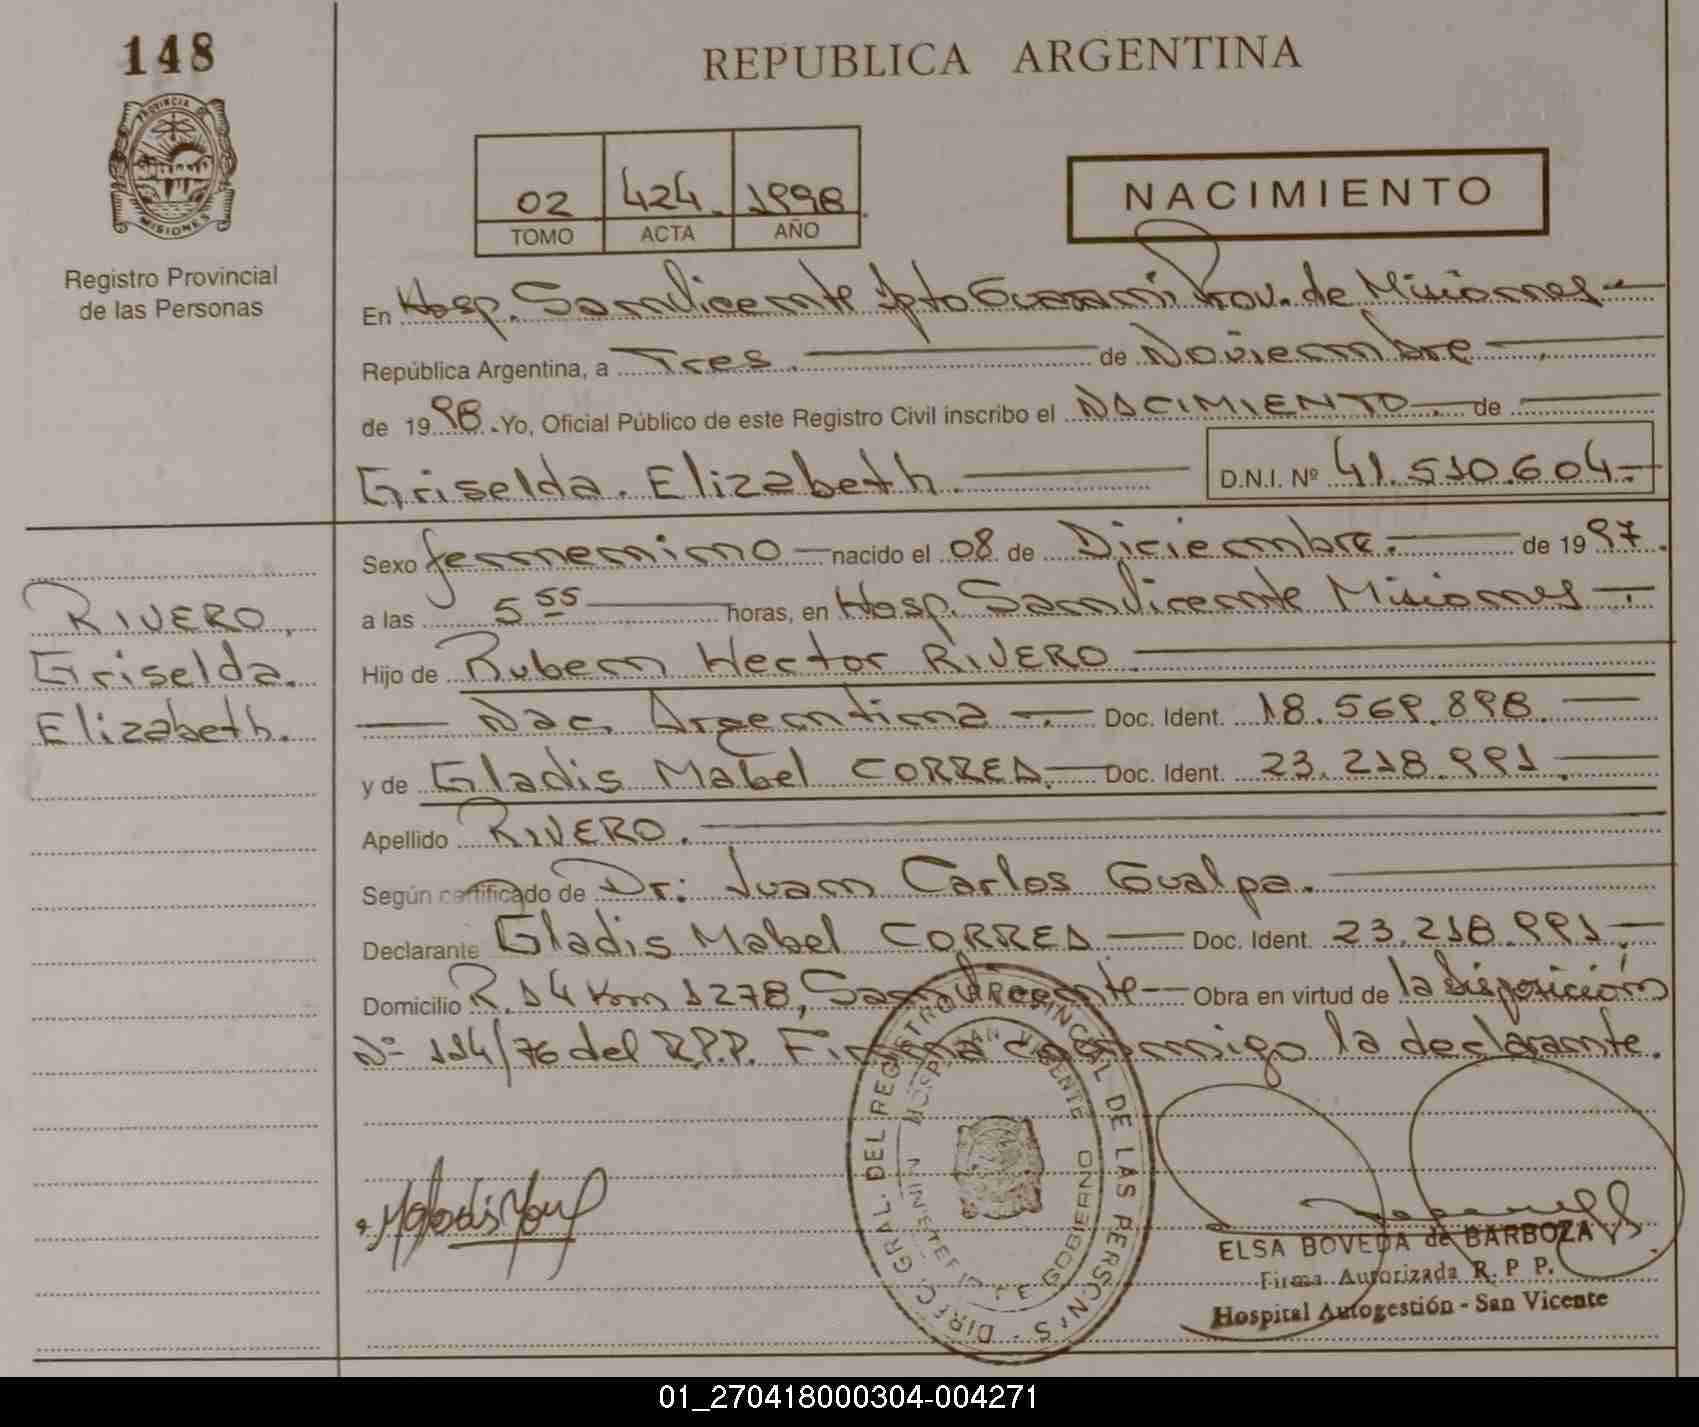 148
PROVINCIA D
MISIONES
Registro Provincial
de las Personas
REPUBLICA ARGENTINA
02 424. 1998.
TOMO ACTA AÑO
NACIMIENTO
En Hosp. San Vicente Dpto Guarani Prov. de Misiones
República Argentina, a Tres. de Noviembre
de 1998. Yo, Oficial Público de este Registro Civil inscribo el NACIMIENTO. de
Griselda. Elizabeth. D.N.I. Nº 41.510.604.
Sexo femenino nacido el 08 de Diciembre. de 1997.
a las 5 55 horas, en Hosp. San Vicente Misiones
Hijo de Ruben Hector RIVERO.
Nac. Argentina Doc. Ident. 18.569.898.
y de Gladis Mabel CORREA. Doc. Ident. 23.218.991.
Apellido RIVERO.
Según certificado de Dr: Juan Carlos Gualpa.
Declarante Gladis Mabel CORREA Doc. Ident. 23.218.991.
Domicilio R. 14 Km 1278, San Vicente Obra en virtud de la disposición
Nº 114/76 del R.P.P. Firma conmigo la declarante.
RIVERO,
Griselda.
Elizabeth.
DIREC. GRAL. DEL REGISTRO PROVINCIAL DE LAS PERSONAS
HOSP. SAN VICENTE
GOBIERNO
ELSA BOVEDA de BARBOZA
Firma Autorizada R. P. P.
Hospital Autogestión - San Vicente
01_270418000304-004271